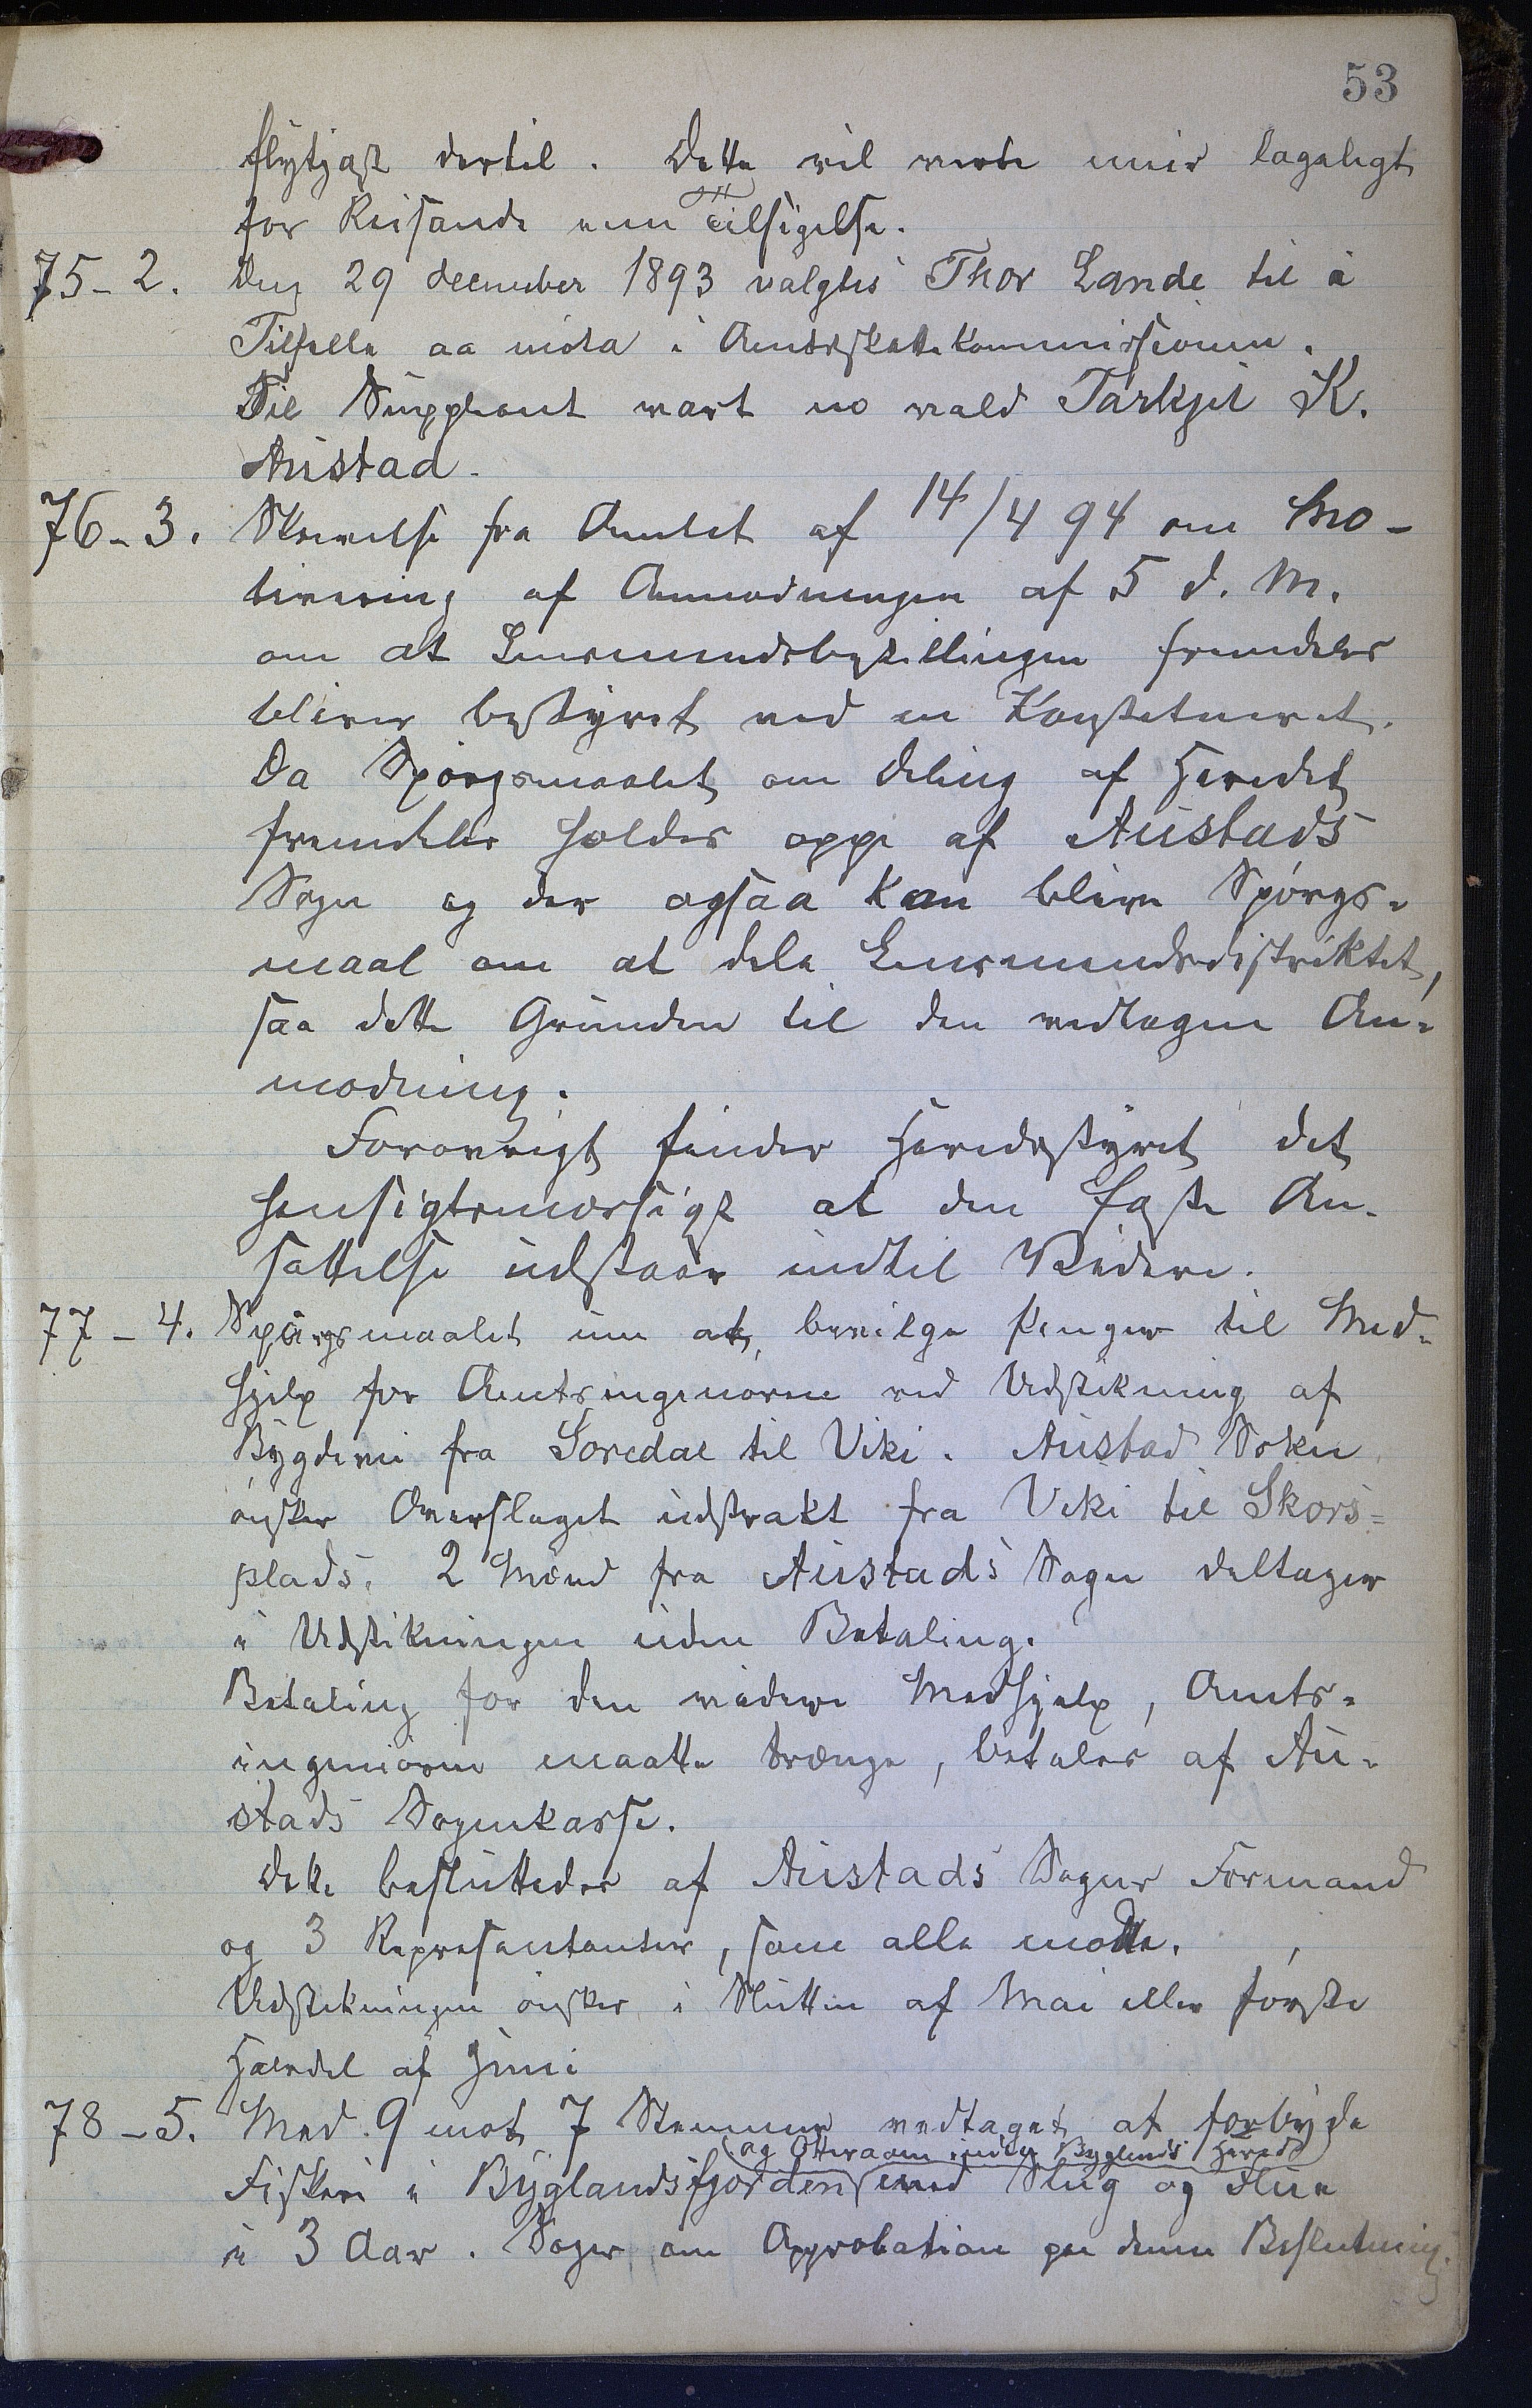 53
flytjast dertil. Dette vil verte meir lageligt
for Reisande enn Tilsigelse.
75-2. Den 29 december 1893 valgtes Thor Lande til i
Tilfelle aa møta i Amtsskattekommissionen.
Til Suppleant vart no vald Tarkjel K.
Austad.
76-3. Skrivelse fra Amtet af 14/4 94 om Mo-
tivering af Anmodningen af 5 d. M.
om at Lensmandsbestillingen fremdeles
bliver bestyret ved en Konstitueret.
Da Spørgsmaalet om Deling af Heredet
fremdeles holdes oppe af Austads
Sogn og der ogsaa kan blive Spørgs-
maal om at dele Lensmandsdistriktet,
saa dette Grunden til den vedtagne An-
modning.
Forøvrigt finder Heredsstyret det
hensigtsmæssigst at den faste An-
sættelse udstaar indtil Videre.
77-4. Spørgsmaalet um at bevilge Penger til Med-
hjelp for Amtsingeniøren ved Udstikning af
Bygdevei fra Longerdal til Viki. Austad Sokn
ønsker Overslaget udstrakt fra Viki til Skors-
plads. 2 Mænd fra Austads Sogn deltager
i Udstikningen uden Betaling.
Betaling for den videre Medhjælp, Amts-
ingeniøren maatte trænge, betales af Au-
stads Sognekasse.
Dette besluttedes af Austads Sogns Formand
og 3 Repræsentanter, som alle mødte.
Udstikningen ønskes i Slutten af Mai eller første
Halvdel af Juni
78-5. Med 9 mot 7 Stemmer vedtaget at forbyde
og Otteraaen inden Byglands Hered
Fiskeri i Byglandsfjorden med Slug og Flue
i 3 Aar. Søger om Approbation paa denne Beslutning.